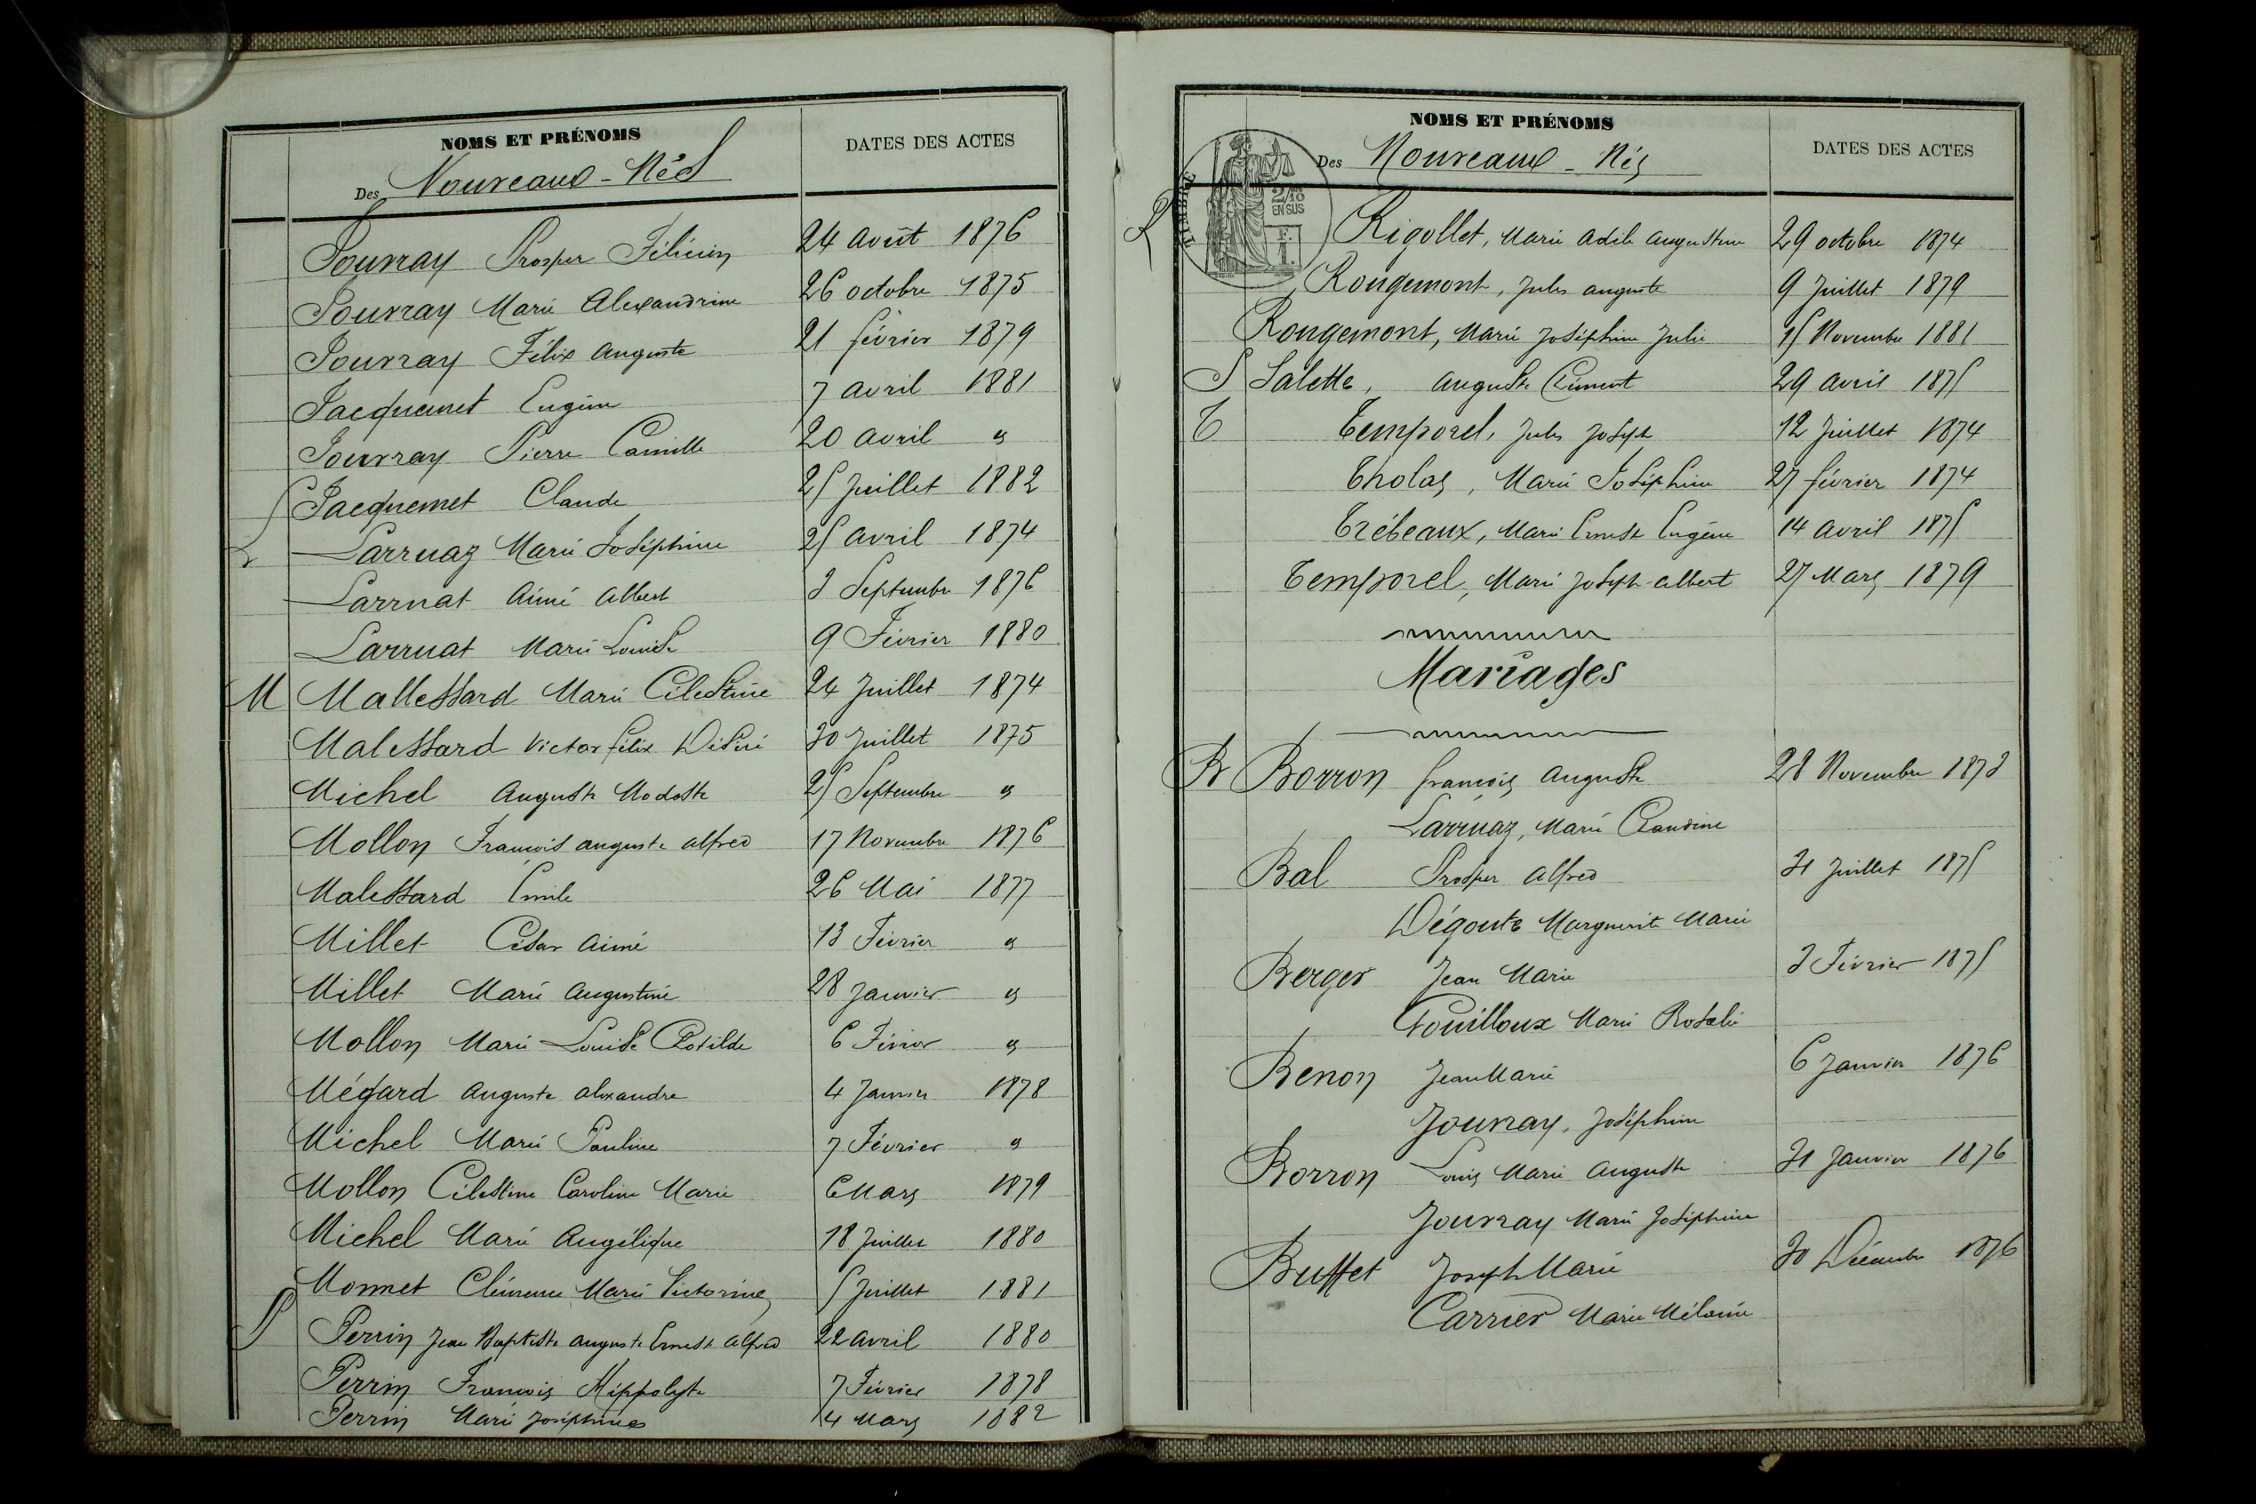 NOMS ET PRÉNOMS
DATES DES ACTES
Des Nouveaux-Nés
Jourray Prosper Félicien 24 août 1876
Jourray Marie Alexandrine 26 octobre 1875
Jourray Félix Auguste 21 février 1879
Jacquemet Eugène 7 avril 1881
Jourray Pierre Camille 20 avril "
Jacquemet Claude 25 Juillet 1882
L Larruaz Marie Joséphine 25 avril 1874
Larruat Aimé Albert 3 Septembre 1876
Larruat Marie Louise 9 Février 1880
M Mallessard Marie Célestine 24 Juillet 1874
Malessard Victor félix Désiré 30 Juillet 1875
Michel Auguste Modeste 25 Septembre "
Mollon François auguste alfred 17 Novembre 1876
Malessard Emile 26 Mai 1877
Millet César Aimé 13 Février "
Millet Marie Augustine 28 Janvier "
Mollon Marie Louise Clotilde 6 Février "
Mégard Auguste alexandre 4 Janvier 1878
Michel Marie Pauline 7 Février "
Mollon Célestine Caroline Marie 6 Mars 1879
Michel Marie Angélique 18 Juillet 1880
Monnet Clémence Marie Victorine 5 Juillet 1881
P Perrin Jean Baptiste auguste Ernest alfred 22 avril 1880
Perrin François Hippolyte 7 Février 1878
Perrin Marie Joséphine 4 Mars 1882
NOMS ET PRÉNOMS
DATES DES ACTES
Des Nouveaux-Nés
TIMBRE
2/10
EN SUS
R Rigollet, Marie Adèle Augustine 29 octobre 1874
Rougemont, Jules auguste 9 Juillet 1879
Rougemont, Marie Joséphine Julie 15 Novembre 1881
S Salette, Auguste Clément 29 avril 1875
T Temporel, Jules Joseph 12 Juillet 1874
Tholas, Marie Joséphine 27 février 1874
Trébeaux, Marie Ernest Eugène 14 avril 1875
Temporel, Marie Joseph-albert 27 Mars 1879
Mariages
B Borron françois Auguste 28 Novembre 1873
Larruaz, Marie Claudine
Bal Prosper Alfred 31 Juillet 1875
Dégoute Marguerite Marie
Berger Jean Marie 3 Février 1875
Fouilloux Marie Rosalie
Benon Jean Marie 6 Janvier 1876
Jourray, Joséphine
Borron Louis Marie Auguste 31 Janvier 1876
Jourray Marie Joséphine
Buffet Joseph Marie 30 Décembre 1876
Carrier Marie Mélanie